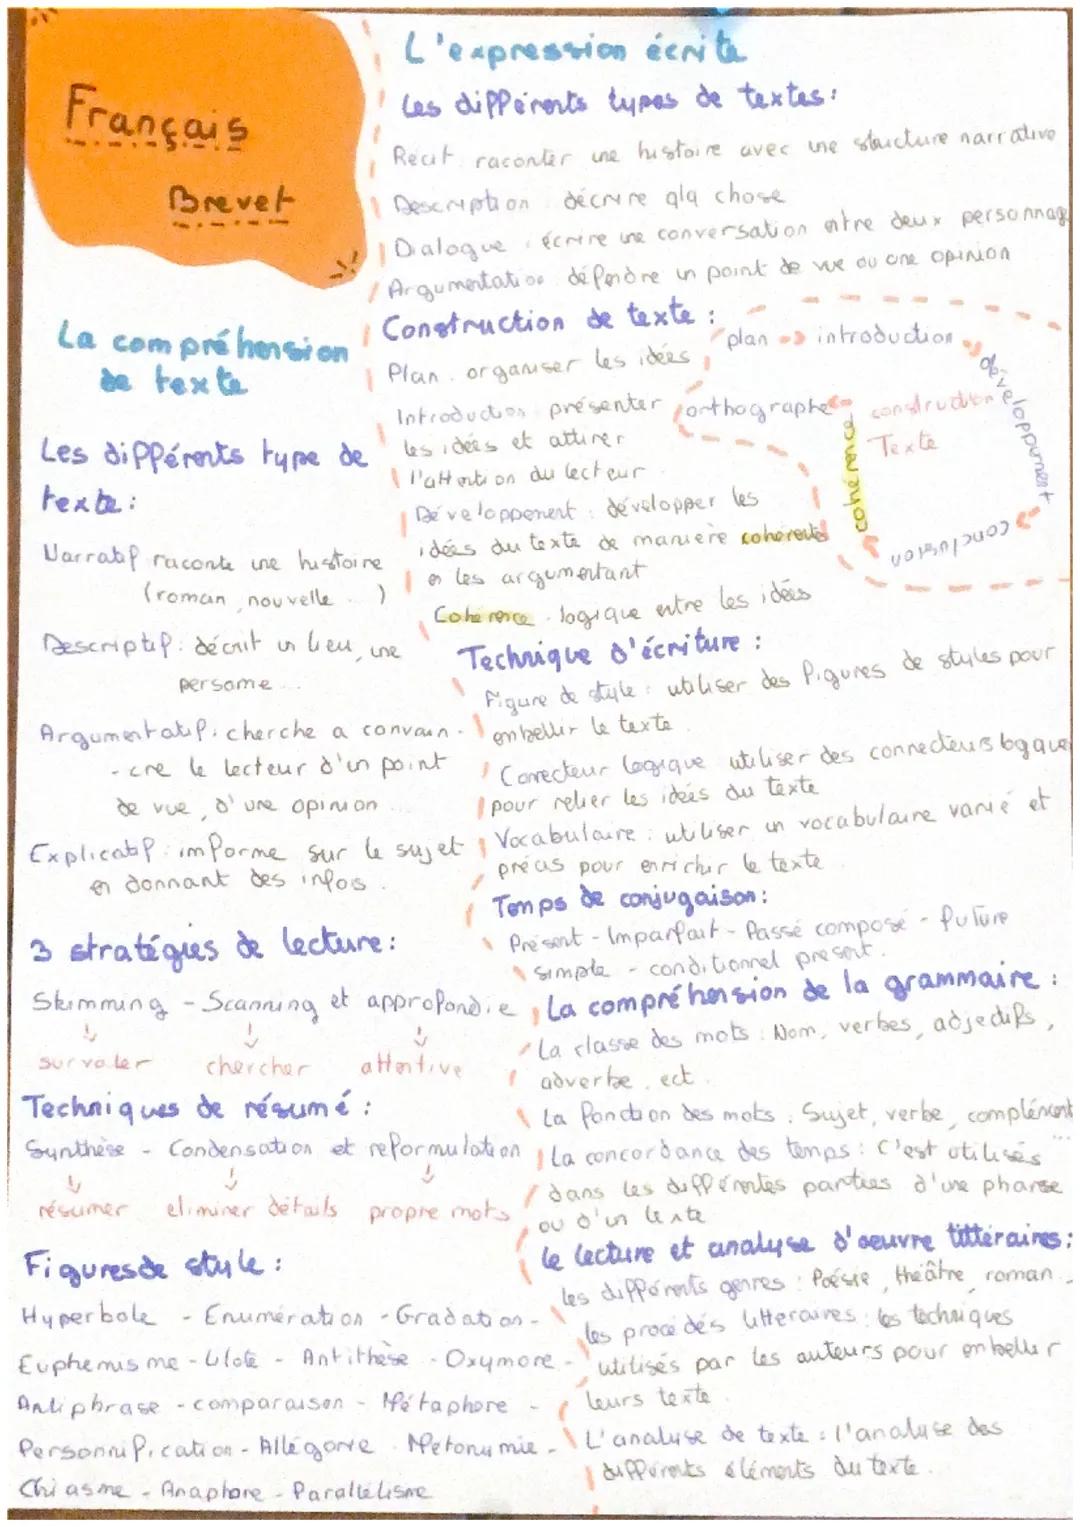 Français
Brevet
La compréhension
de texte
Les différents type de
texte :
Narratif raconte une histoire
(roman, nouvelle ... )
Descriptif : décrit un lieu, une
personne ...
Argumentatif : cherche a convain-
-cre le lecteur d'un point
de vue, d'une opinion ...
Explicatif : informe sur le sujet
en donnant des infos .
3 stratégies de lecture :
Skimming - Scanning et approfondie
survoler chercher attentive
Techniques de résumé :
Synthèse - Condensation et reformulation
résumer eliminer détails propre mots
Figures de style :
Hyperbole - Enumération - Gradation -
Euphemisme - Litote - Antithèse - Oxymore -
Antiphrase - comparaison - Métaphore -
Personnification - Allégorie - Métonymie -
Chiasme - Anaphore - Parallélisme
L'expression écrite
Les différents types de textes :
Récit : raconter une histoire avec une structure narrative
Description : décrire qlq chose
Dialogue : écrire une conversation entre deux personnage
Argumentation : défendre un point de vue ou une opinion
Construction de texte :
Plan : organiser les idées
Introduction : présenter
les idées et attirer
l'attention du lecteur
Développement : développer les
idées du texte de manière cohérentes
en les argumentant
Cohérence : logique entre les idées
plan → introduction
développement
conclusion
cohérence
orthographe
construction
Texte
Technique d'écriture :
Figure de style : utiliser des figures de styles pour
embellir le texte .
Connecteur logique : utiliser des connecteurs logique
pour relier les idées du texte
Vocabulaire : utiliser un vocabulaire varié et
précis pour enrichir le texte .
Temps de conjugaison :
Présent - Imparfait - Passé composé - future
simple - conditionnel présent .
La compréhension de la grammaire :
La classe des mots : Nom, verbes, adjectifs,
adverbe, ect .
La fonction des mots : Sujet, verbe, complément
...
La concordance des temps : C'est utilisés
dans les différentes parties d'une pharse
ou d'un texte
le lecture et analyse d'oeuvre littéraires :
les différents genres : Poésie, théâtre, roman ...
les procédés littéraires : les techniques
utilisés par les auteurs pour embellir
leurs texte .
L'analyse de texte : l'analyse des
différents éléments du texte .